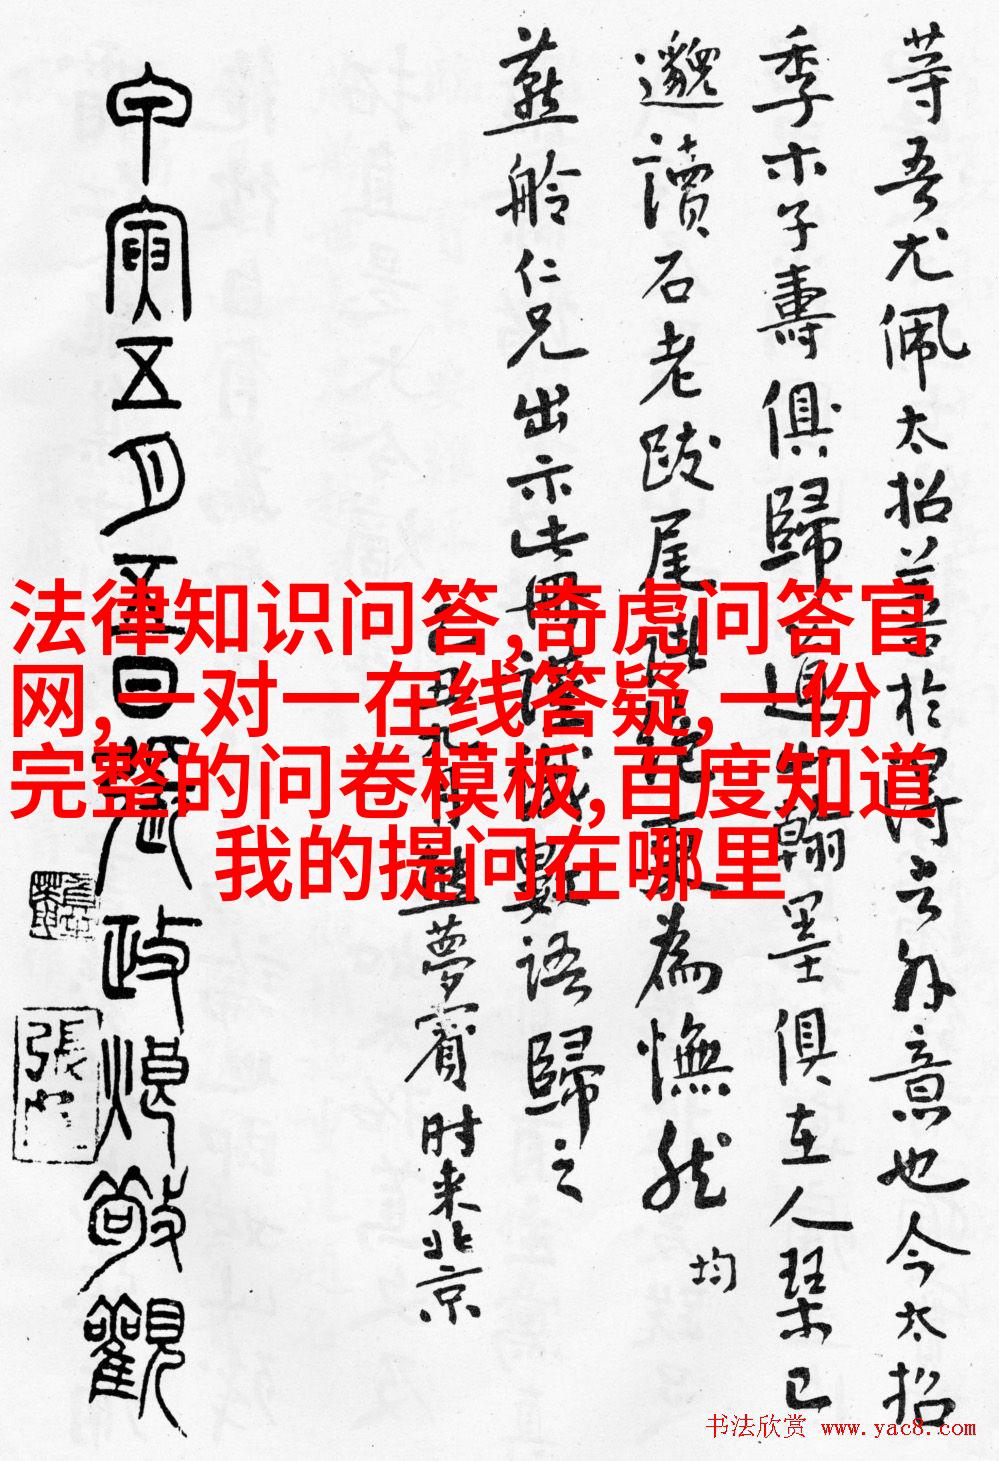 等吾尤佩太招
善於得言外意也今太招
季木子壽俱歸
道山翰墨俱在人琴已
邈讀石老跋尾
為憮然
均
燕舲仁兄出示此冊
謹識數語歸之
夢賓时来北京
甲寅五月
五日
政烺敬觀
張
法律知识问答,奇虎问答官
网,一对一在线答疑,一份
完整的问卷模板,百度知道
我的提问在哪里
书法欣赏 www.yac8.com